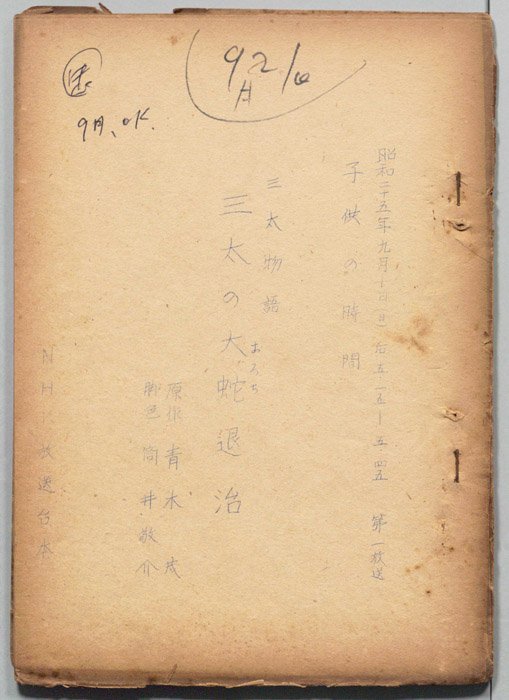 9月、OK.
昭和二十五年九月一〇(日) 后五・一五ー五・四五 第一放送
子供の時間
三太物語
三太の大蛇退治
おろち
原作 青木茂
脚色 筒井敬介
NHK放送台本